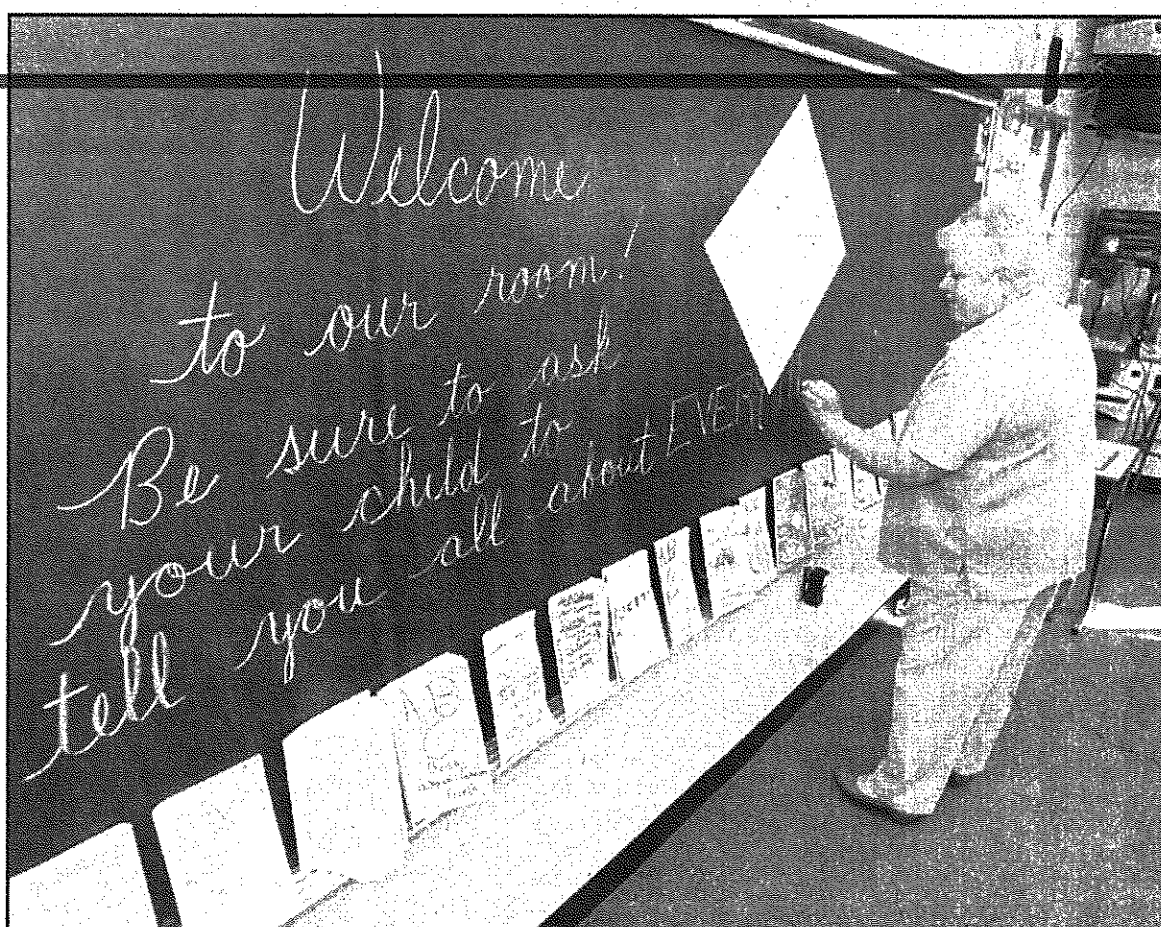 Welcome
to our room!
Be sure to ask
your child to
tell you all about EVERY